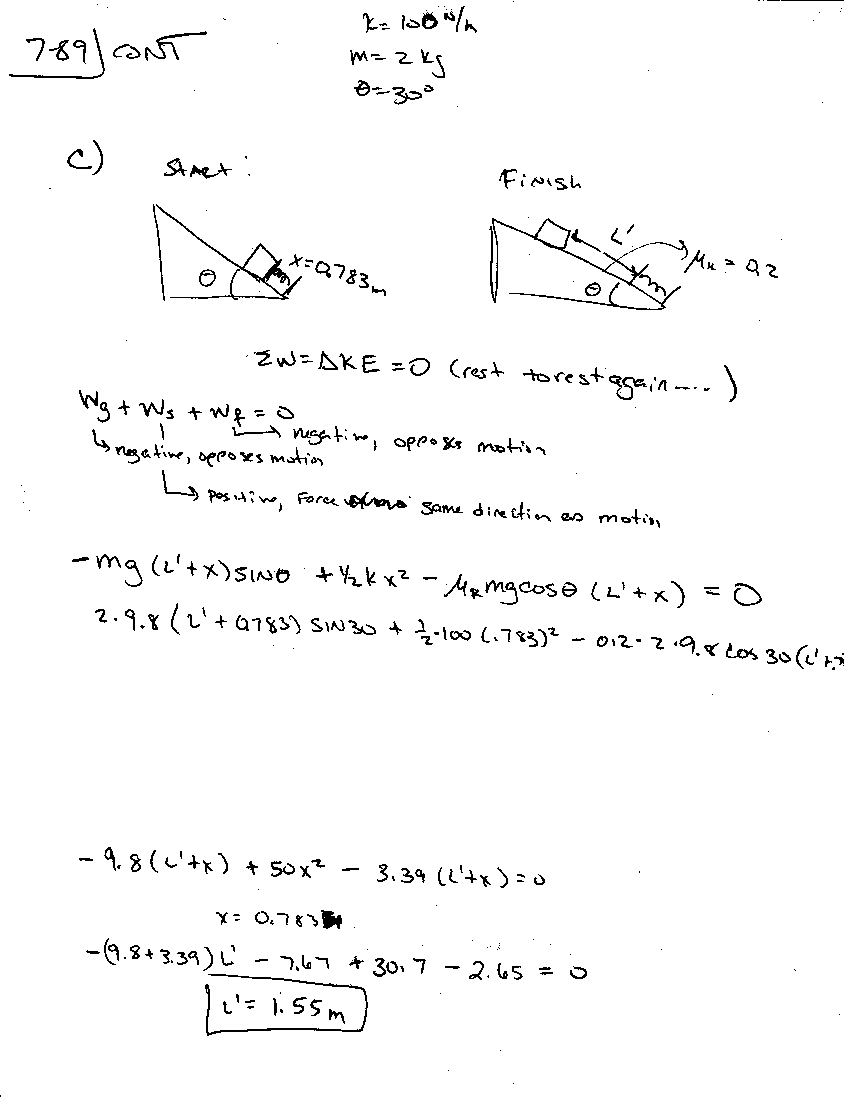 7-89 CONT
k = 100 N/m
m = 2 kg
θ = 30°
c) Start:
Finish
θ
x = 0.783 m
L'
μk = 0.2
θ
ΣW = ΔKE = 0 (rest to rest again....)
Wg + Ws + Wf = 0
negative, opposes motion
negative, opposes motion
positive, Force same direction as motion
-mg (L'+x) SINθ + ½ k x² - μk mg cosθ (L'+x) = 0
2·9.8 (L' + 0.783) SIN 30 + ½·100 (.783)² - 0.2·2·9.8 cos 30 (L'+.7
- 9.8 (L'+x) + 50x² - 3.39 (L'+x) = 0
x = 0.783
-(9.8+3.39) L' - 7.67 + 30.7 - 2.65 = 0
L' = 1.55 m